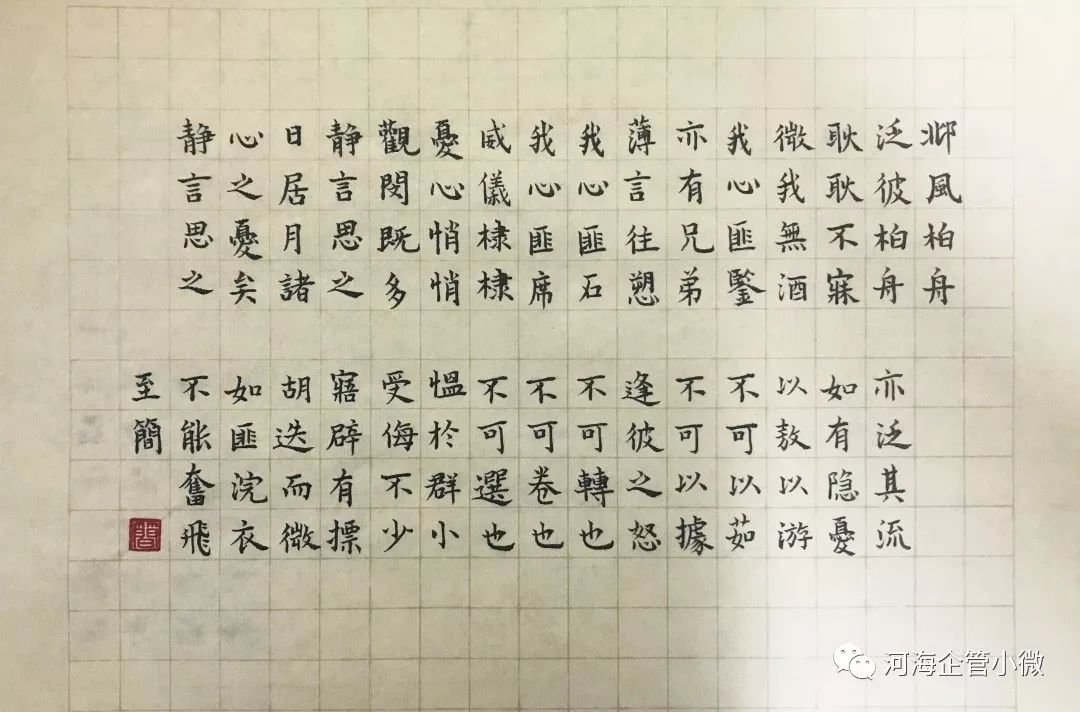 邶風柏舟
泛彼柏舟 亦泛其流
耿耿不寐 如有隐憂
微我無酒 以敖以游
我心匪鑒 不可以茹
亦有兄弟 不可以據
薄言往愬 逢彼之怒
我心匪石 不可轉也
我心匪席 不可卷也
威儀棣棣 不可選也
憂心悄悄 慍於群小
觀閔既多 受侮不少
静言思之 寤辟有摽
日居月諸 胡迭而微
心之憂矣 如匪浣衣
静言思之 不能奮飛
至簡
河海企管小微